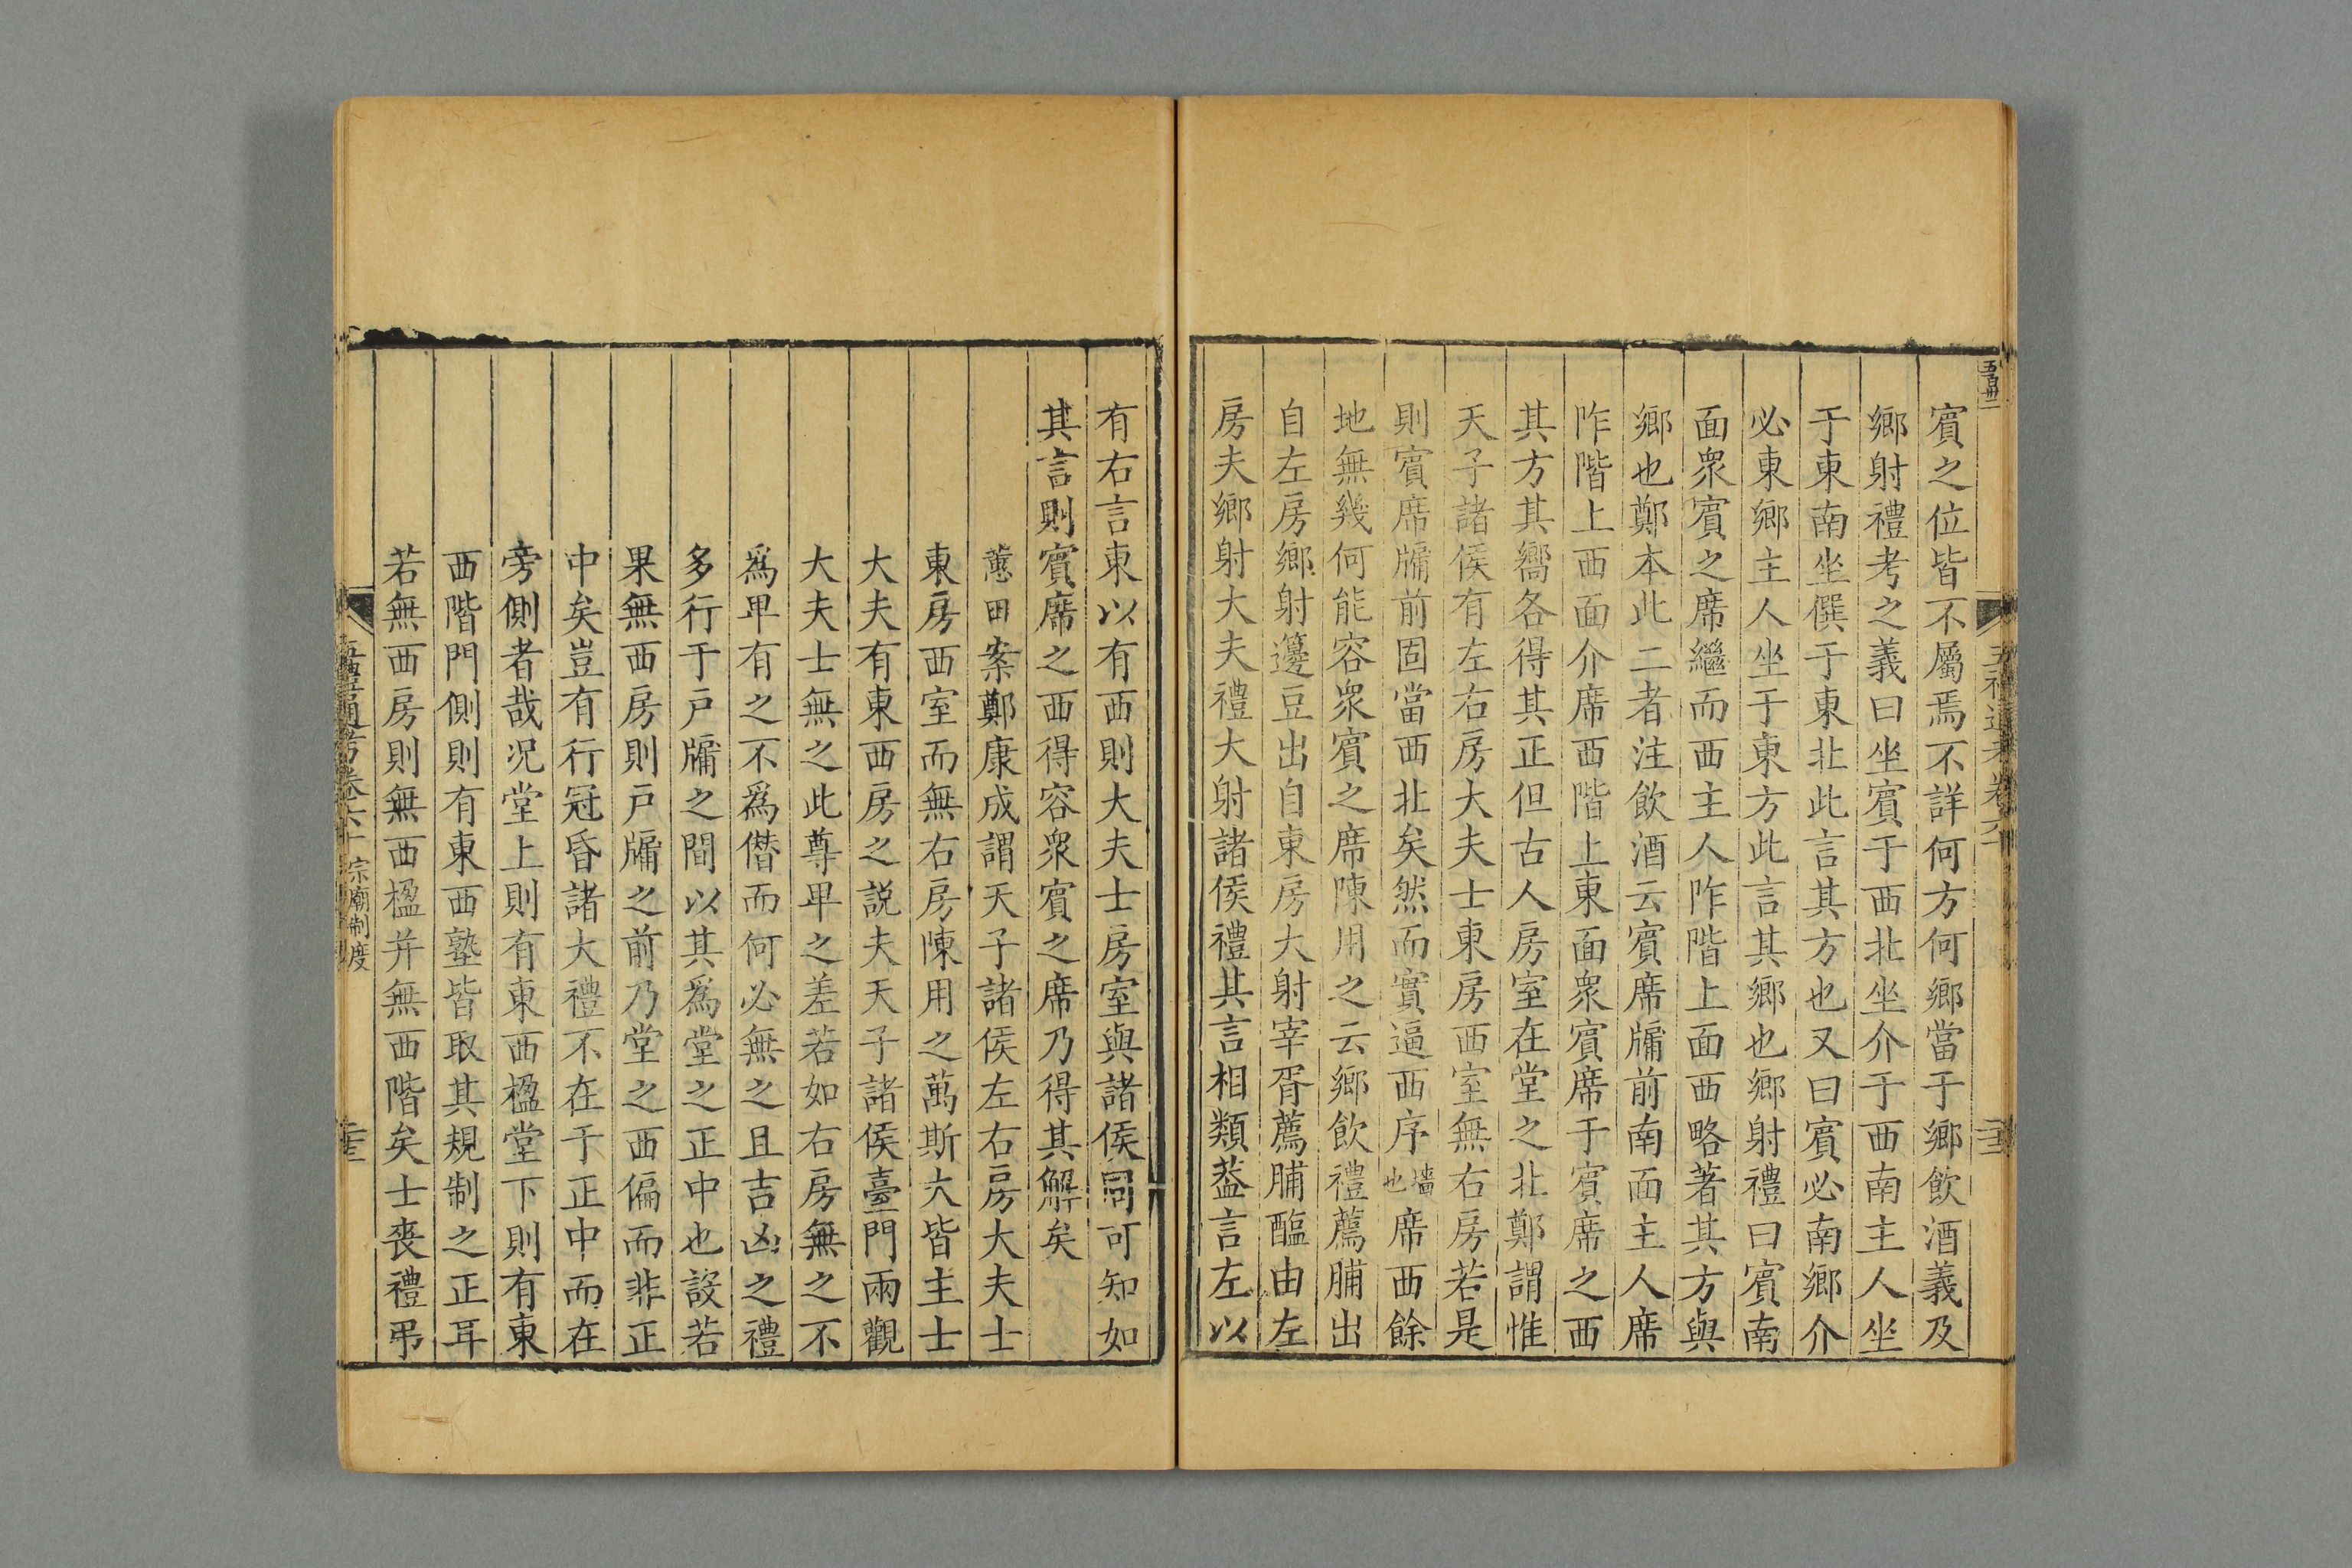 五百卅二
五禮通考卷六十
賓之位皆不屬焉不詳何方何鄉當于鄉飲酒義及
鄉射禮考之義曰坐賓于西北坐介于西南主人坐
于東南坐僎于東北此言其方也又曰賓必南鄉介
必東鄉主人坐于東方此言其鄉也鄉射禮曰賓南
面衆賓之席繼而西主人阼階上面西略著其方與
鄉也鄭本此二者注飲酒云賓席牖前南面主人席
阼階上西面介席西階上東面衆賓席于賓席之西
其方其嚮各得其正但古人房室在堂之北鄭謂惟
天子諸侯有左右房大夫士東房西室無右房若是
則賓席牖前固當西北矣然而實逼西序墻也席西餘
地無幾何能容衆賓之席陳用之云鄉飲禮薦脯出
自左房鄉射籩豆出自東房大射宰胥薦脯醢由左
房夫鄉射大夫禮大射諸侯禮其言相類葢言左以
有右言東以有西則大夫士房室與諸侯同可知如
其言則賓席之西得容衆賓之席乃得其解矣
蕙田案鄭康成謂天子諸侯左右房大夫士
東房西室而無右房陳用之萬斯大皆主士
大夫有東西房之説夫天子諸侯臺門兩觀
大夫士無之此尊卑之差若如右房無之不
爲卑有之不爲僭而何必無之且吉凶之禮
多行于戸牖之間以其爲堂之正中也設若
果無西房則戸牖之前乃堂之西偏而非正
中矣豈有行冠昏諸大禮不在于正中而在
旁側者哉况堂上則有東西楹堂下則有東
西階門側則有東西塾皆取其規制之正耳
若無西房則無西楹并無西階矣士喪禮弔
五禮通考卷六十　宗廟制度